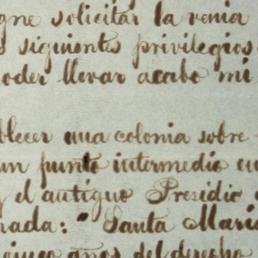 gne solicitar la venia
s siguientes privilegios
oder llevar acabo mi
blecer una colonia sobre
un punto intermedio en
y el antiguo Presidio
nada: "Santa Maria
cinco años del derecho